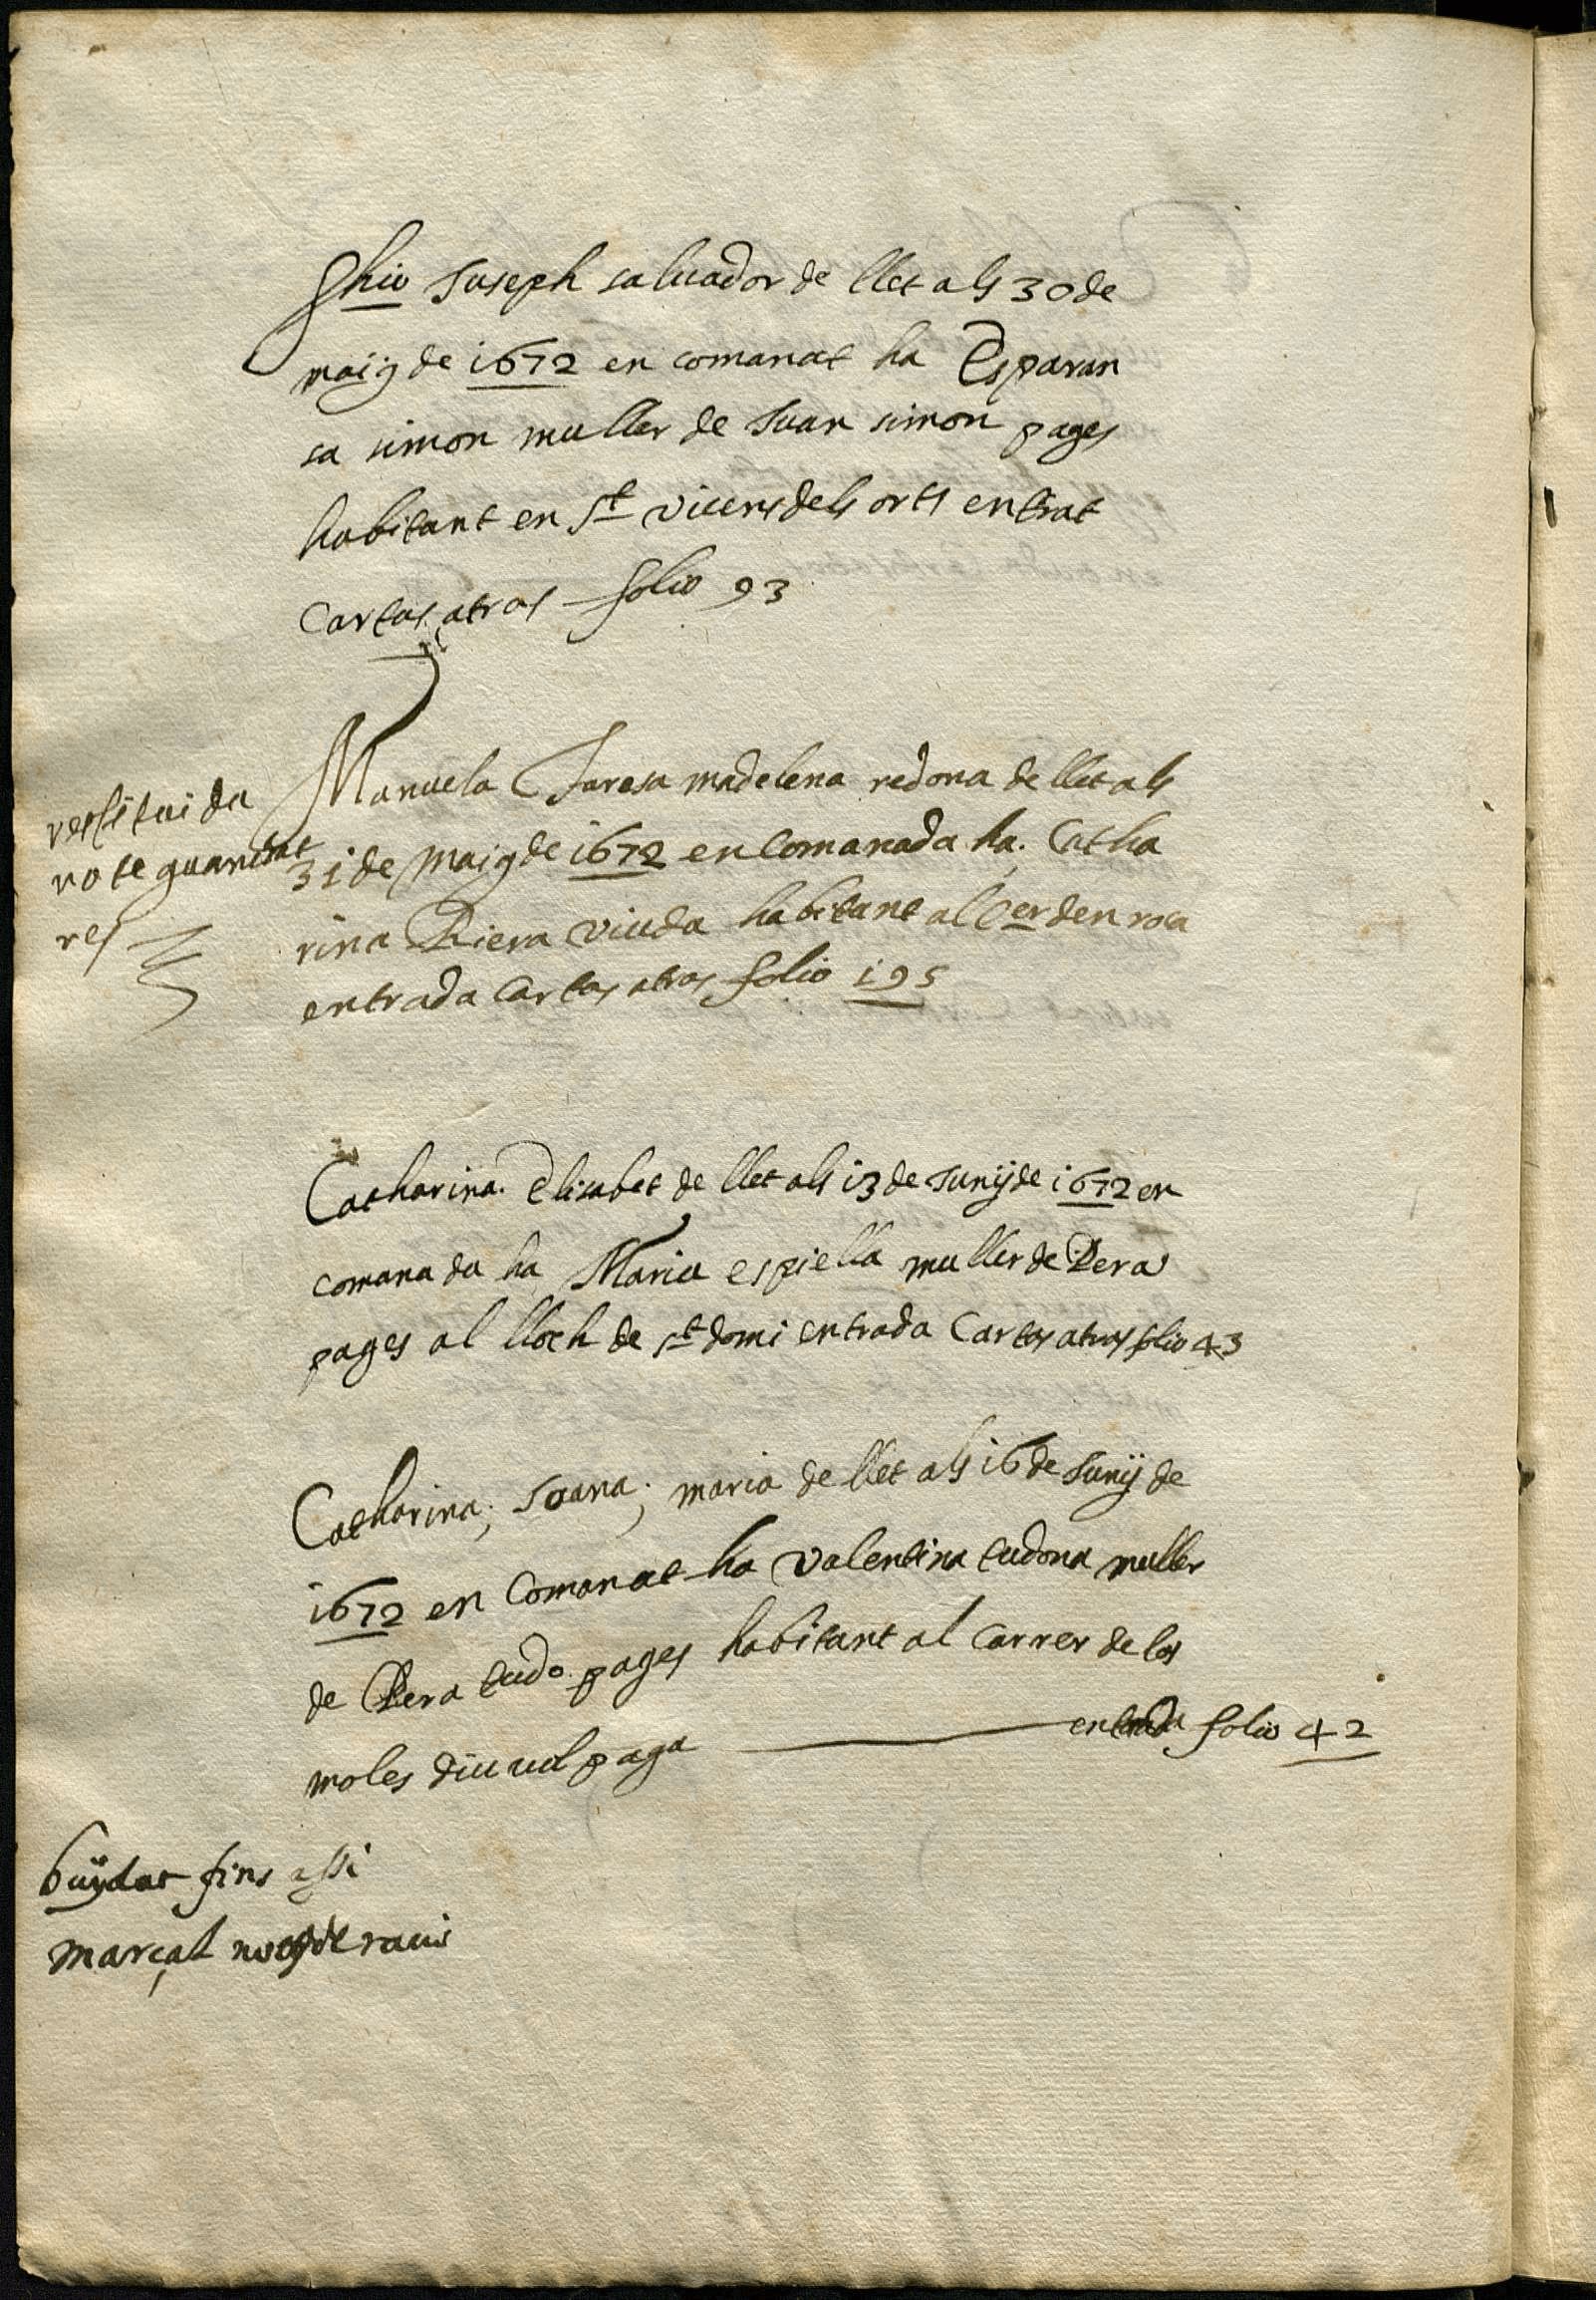 Ghio Juseph saluador de llet als 30 de
maig de 1672 en comanat ha Esparan
sa simon muller de Juan simon pages
habitant en St vicens dels orts entrat
Cartas atras folio 93
Manuela Taresa madelena redona de llet als
31 de Maig de 1672 en Comanada ha Catha
rina Riera viuda habitant al Cer den roca
entrada Cartas atras folio 195
restituida
no te guanÿat
res
Catharina Elisabet de llet als 13 de Junÿ de 1672 en
comanada ha Maria espiella muller de Pera
pages al lloch de St domi entrada Cartas atras folio 43
Catharina; Joana; maria de llet als 16 de Junÿ de
1672 en Comanat ha Valentina tudona muller
de Pera tudo pages habitant al Carrer de los
moles diu vol paga entrada folio 42
buÿdat fins assi
Marçal